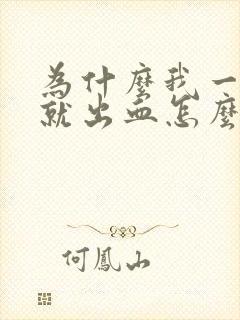 為什麼我一
就出血怎麼
何鳳山